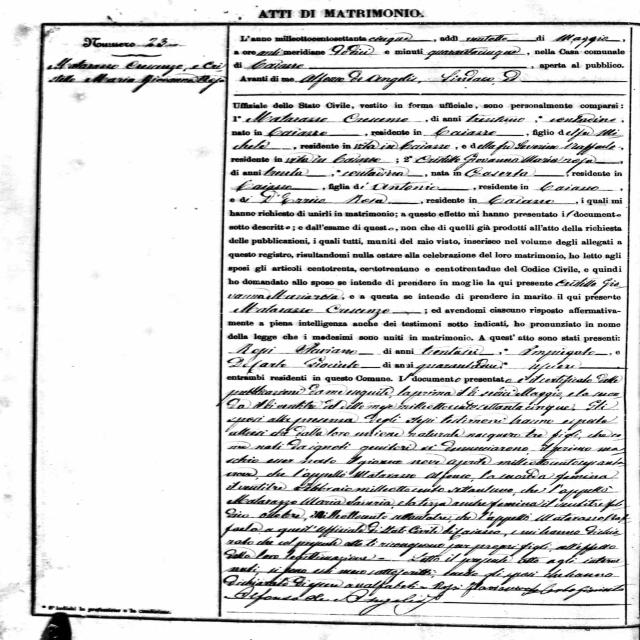 ATTI DI MATRIMONIO.
Numero 23
Matarasso Crescenzo, e Cri
stillo Maria Giovanna Rosa
L'anno millottocentosettanta cinque, addì ventotto di Maggio,
a ore anti meridiane dodici e minuti quarantacinque, nella Casa comunale
di Caiazzo, aperta al pubblico.
Avanti di me Alfonso de Angelis, Sindaco, ed
Uffiziale dello Stato Civile, vestito in forma ufficiale, sono personalmente comparsi:
1° Matarasso Crescenzo, di anni trentuno, contadino,
nato in Caiazzo, residente in Caiazzo, figlio del fu Mi
chele, residente in vita in Caiazzo, e della fu Raffaela,
residente in vita in Caiazzo; 2° Cristillo Giovanna Maria rosa
di anni trenta, contadina, nata in Caserta, residente in
Caiazzo, figlia di Antonio, residente in Caiazzo,
e di D'Errico Rosa, residente in Caiazzo, i quali mi
hanno richiesto di unirli in matrimonio; a questo effetto mi hanno presentato il documento
sotto descritto; e dall'esame di questo, non che di quelli già prodotti all'atto della richiesta
delle pubblicazioni, i quali tutti, muniti del mio visto, inserisco nel volume degli allegati a
questo registro, risultandomi nulla ostare alla celebrazione del loro matrimonio, ho letto agli
sposi gli articoli centotrenta, centotrentuno e centotrentadue del Codice Civile, e quindi
ho domandato allo sposo se intende di prendere in moglie la qui presente Cristillo Gio
vanna Maria rosa, e a questa se intende di prendere in marito il qui presente
Matarasso Crescenzo; ed avendomi ciascuno risposto affermativa-
mente a piena intelligenza anche dei testimoni sotto indicati, ho pronunziato in nome
della legge che i medesimi sono uniti in matrimonio. A quest'atto sono stati presenti:
Rossi Flaviano di anni trentasei, Impiegato, e
De Carlo Giacinto di anni quarantadue, usciere
entrambi residenti in questo Comune. Il documento presentato è il certificato delle
pubblicazioni da me eseguite, la prima il dì sedici Maggio, e la secon
da il dì ventitre del detto mese milleottocentosettantacinque. Gli
sposi alla presenza degli stessi testimoni hanno esposto
altresì che dalla loro unione naturale nacquero tre figli, che co
me nati da ignoti genitori si denunciarono. Il primo ma
schio esser nato il giorno nove aprile milleottocento
nove, che l'appellò Matarasso Alfonso, la seconda femina
il ventitre Febbraio milleottocento settantuno, che l'appellò
Matarazzo Maria, la terza anche femina il ventitre
ottobre, Milleottocento settantatre, che l'appellò Matarasso Raf
faela a quest'Uffiziale di Stato Civile di Caiazzo, e mi hanno dichia
rato che col presente atto li riconoscono per propri figli, all'effetto
della loro legittimazione. Letto il presente atto agli interve
nuti, si sono con meco sottoscritti, meno gli sposi che hanno
dichiarato di essere analfabeti - Rossi Flaviano, De Carlo Giacinto
Alfonso de Angelis
* S'indichi la professione o la condizione.